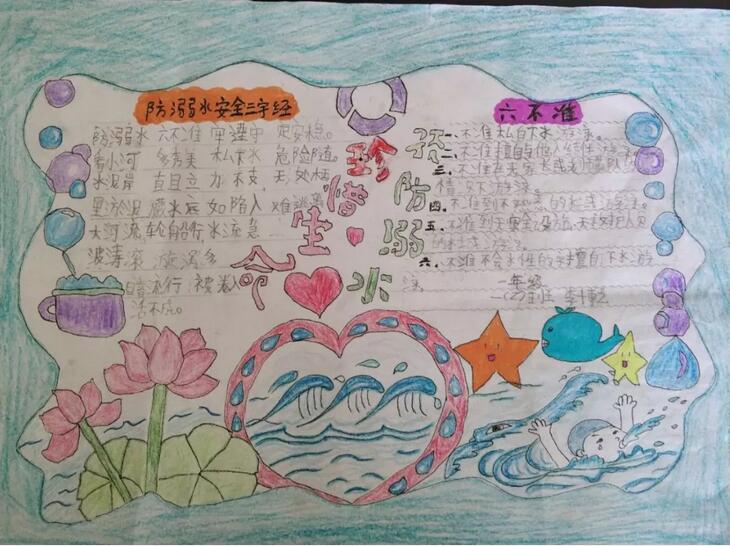 防溺水安全三字经
防溺水 六不准 牢遵守
看小河 多秀美 私下水 危险随
水泥岸 直且立 力不支 无处
里淤泥 如陷入 难逃离
大河流 轮船行 水流急
波涛滚 漩涡多
自行 被卷
活不成。
珍惜生命
预防溺水
六不准
一、不准私自下水游泳。
二、不准擅自与他人结伴游泳
三、不准在无家长或老师带队
情况下游泳。
四、不准到不熟悉的水域游泳。
五、不准到无安全设施、无救护人员
的水域游泳。
六、不准不会水性的学生擅自下水游
泳